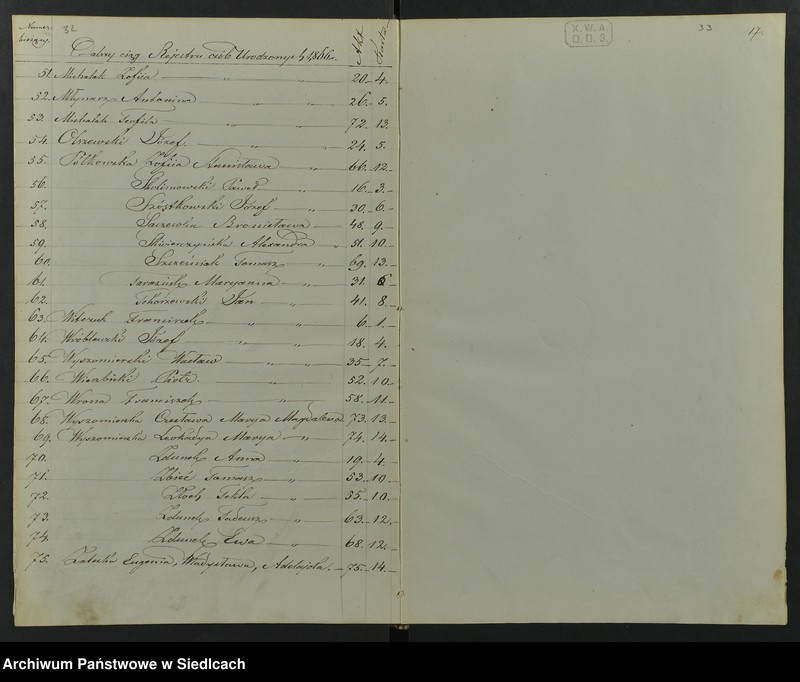 Numer bieżący. 32
Dalszy ciąg Rejestru osób Urodzonych 1866r. Akt Karta
51. Michalak Zofiia " " 20. 4.
52. Młynarz Antonina " " 26. 5.
53. Michalak Teofila " " 72. 13.
54. Olszewski Józef " " 24. 5.
55. Półkowska Zofiia Stanisława " 66. 12.
56. Skolimowski Paweł " 16. 3.
57. Szóstkowski Józef " 30. 6.
58. Bronisława 48. 9.
59. Świerczyńska Alexandra " 51. 10.
60. Szcześniak Tomasz " 69. 13.
61. Maryanna " 31. 6
62. Tokarzewski Jan " 41. 8.
63. Witczuk Franciszek " " 6. 1.
64. Wróblewski Józef " " 18. 4.
65. Wyszomierski Wacław " 35. 7.
66. Wierzbicki Piotr " " 52. 10.
67. Wrona Franciszek " 58. 11.
68. Wyszomierska Czesława Maryja Magdalena 73. 13.
69. Wyszomierska Leokadya Maryja " 74. 14.
70. Zdunek Anna " 19. 4.
71. Tomasz " 53. 10
72. Tekla " 55. 10.
73. Zdunek Tadeusz " 63. 12.
74. Zdunek Ewa " 68. 12.
75. Zaleska Eugenia, Władysława, Adelajda. 75. 14.
X.W.A.
D.O.S.
33 17.
Archiwum Państwowe w Siedlcach